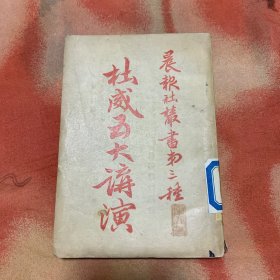 晨报社叢書第三種
杜威五大講演